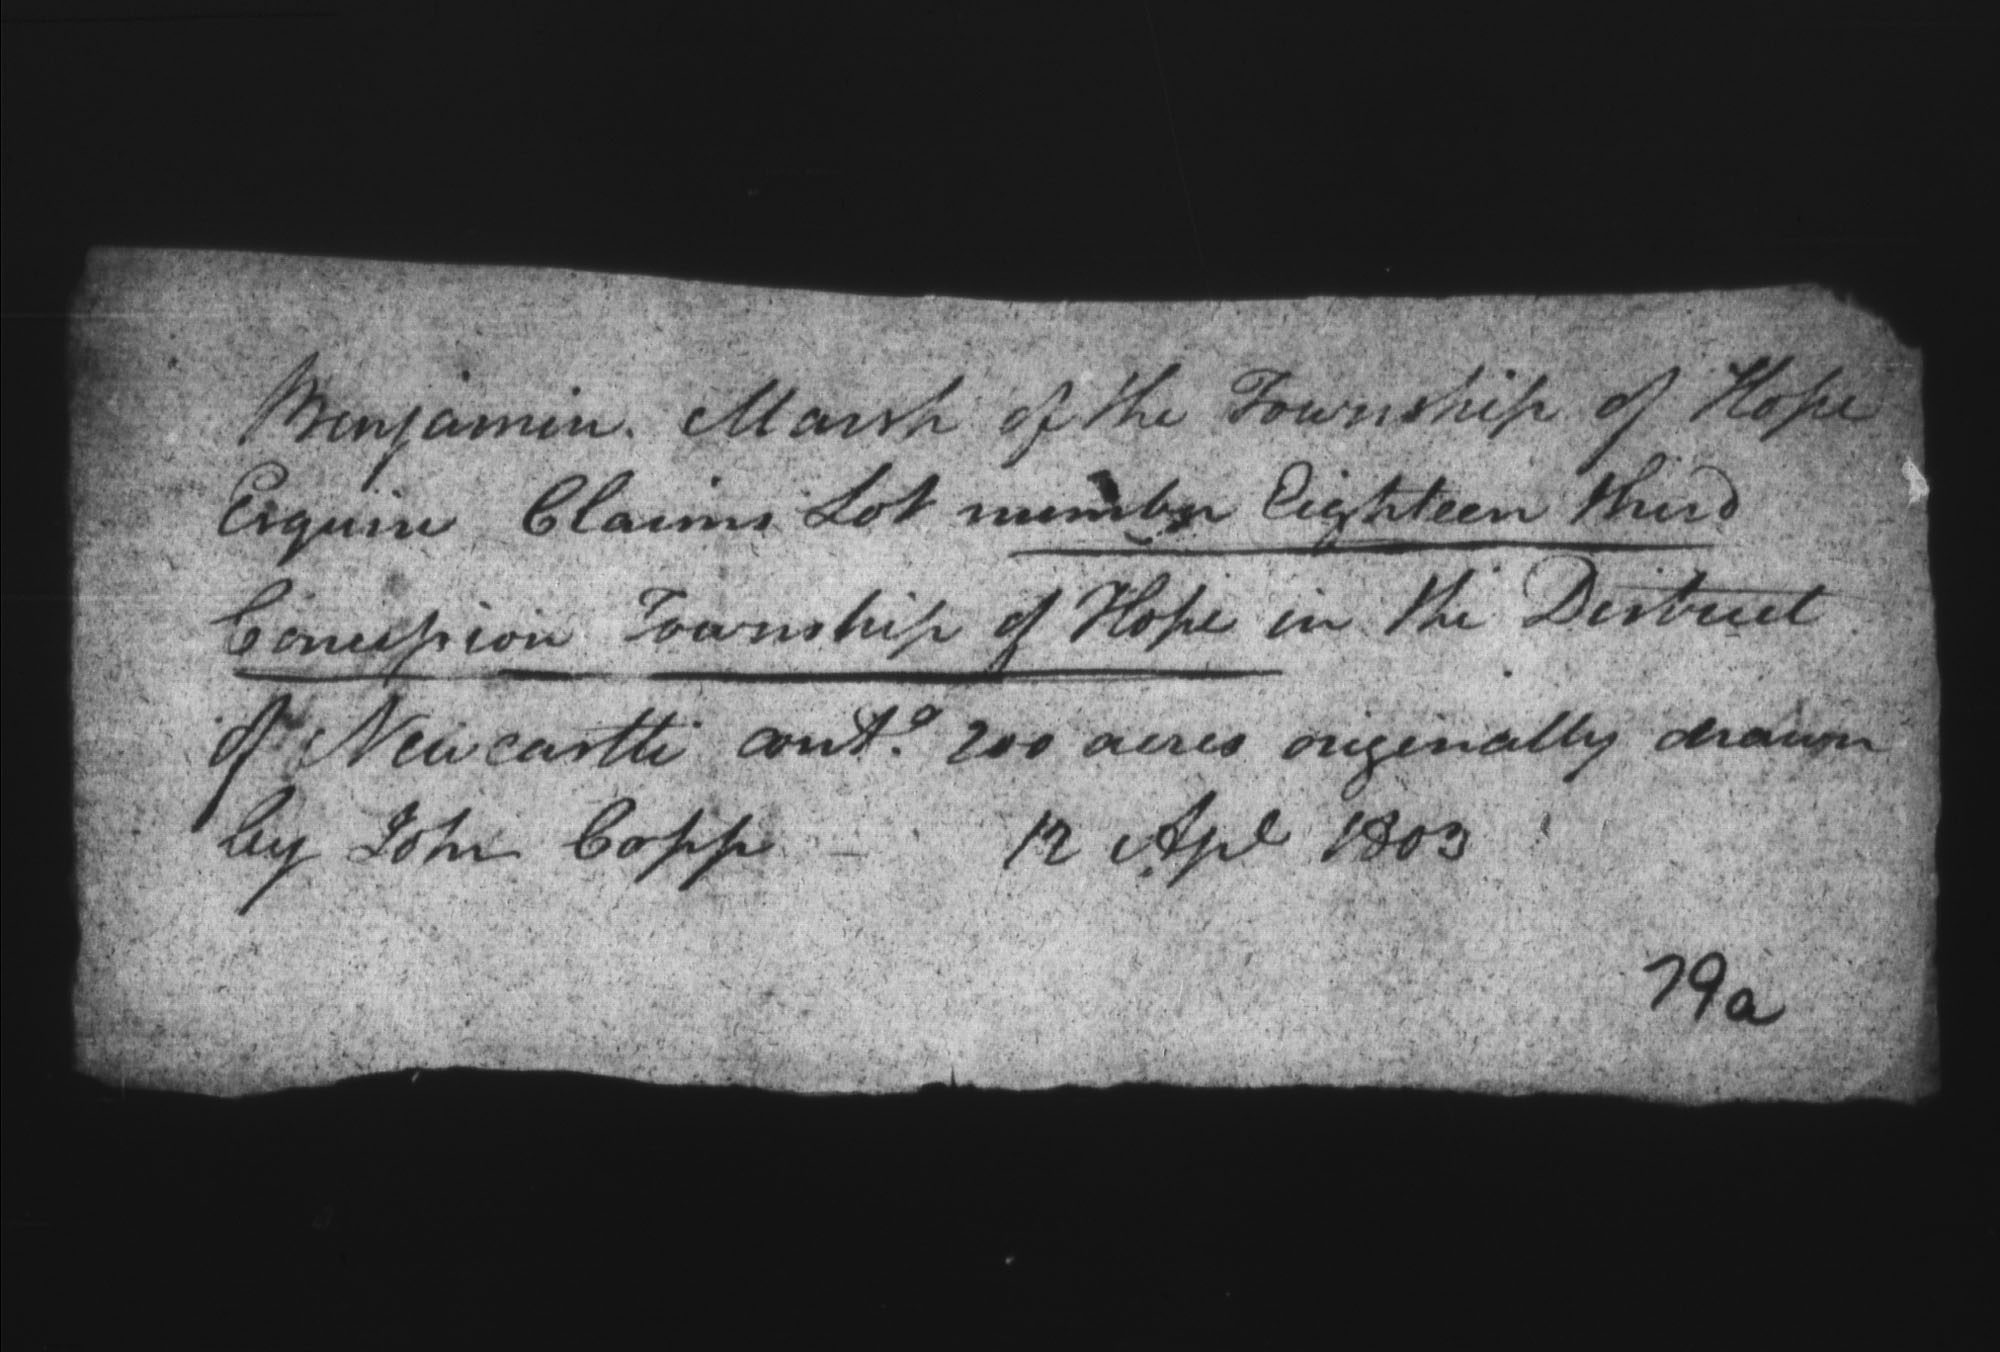 Benjamin. Marsh of the Township of Hope
Esquire Claims Lot number Eighteen third
Concession Township of Hope in the District
of Newcastle contg. 200 acres originally drawn
by John Copp - 12 Apl 1803
79a